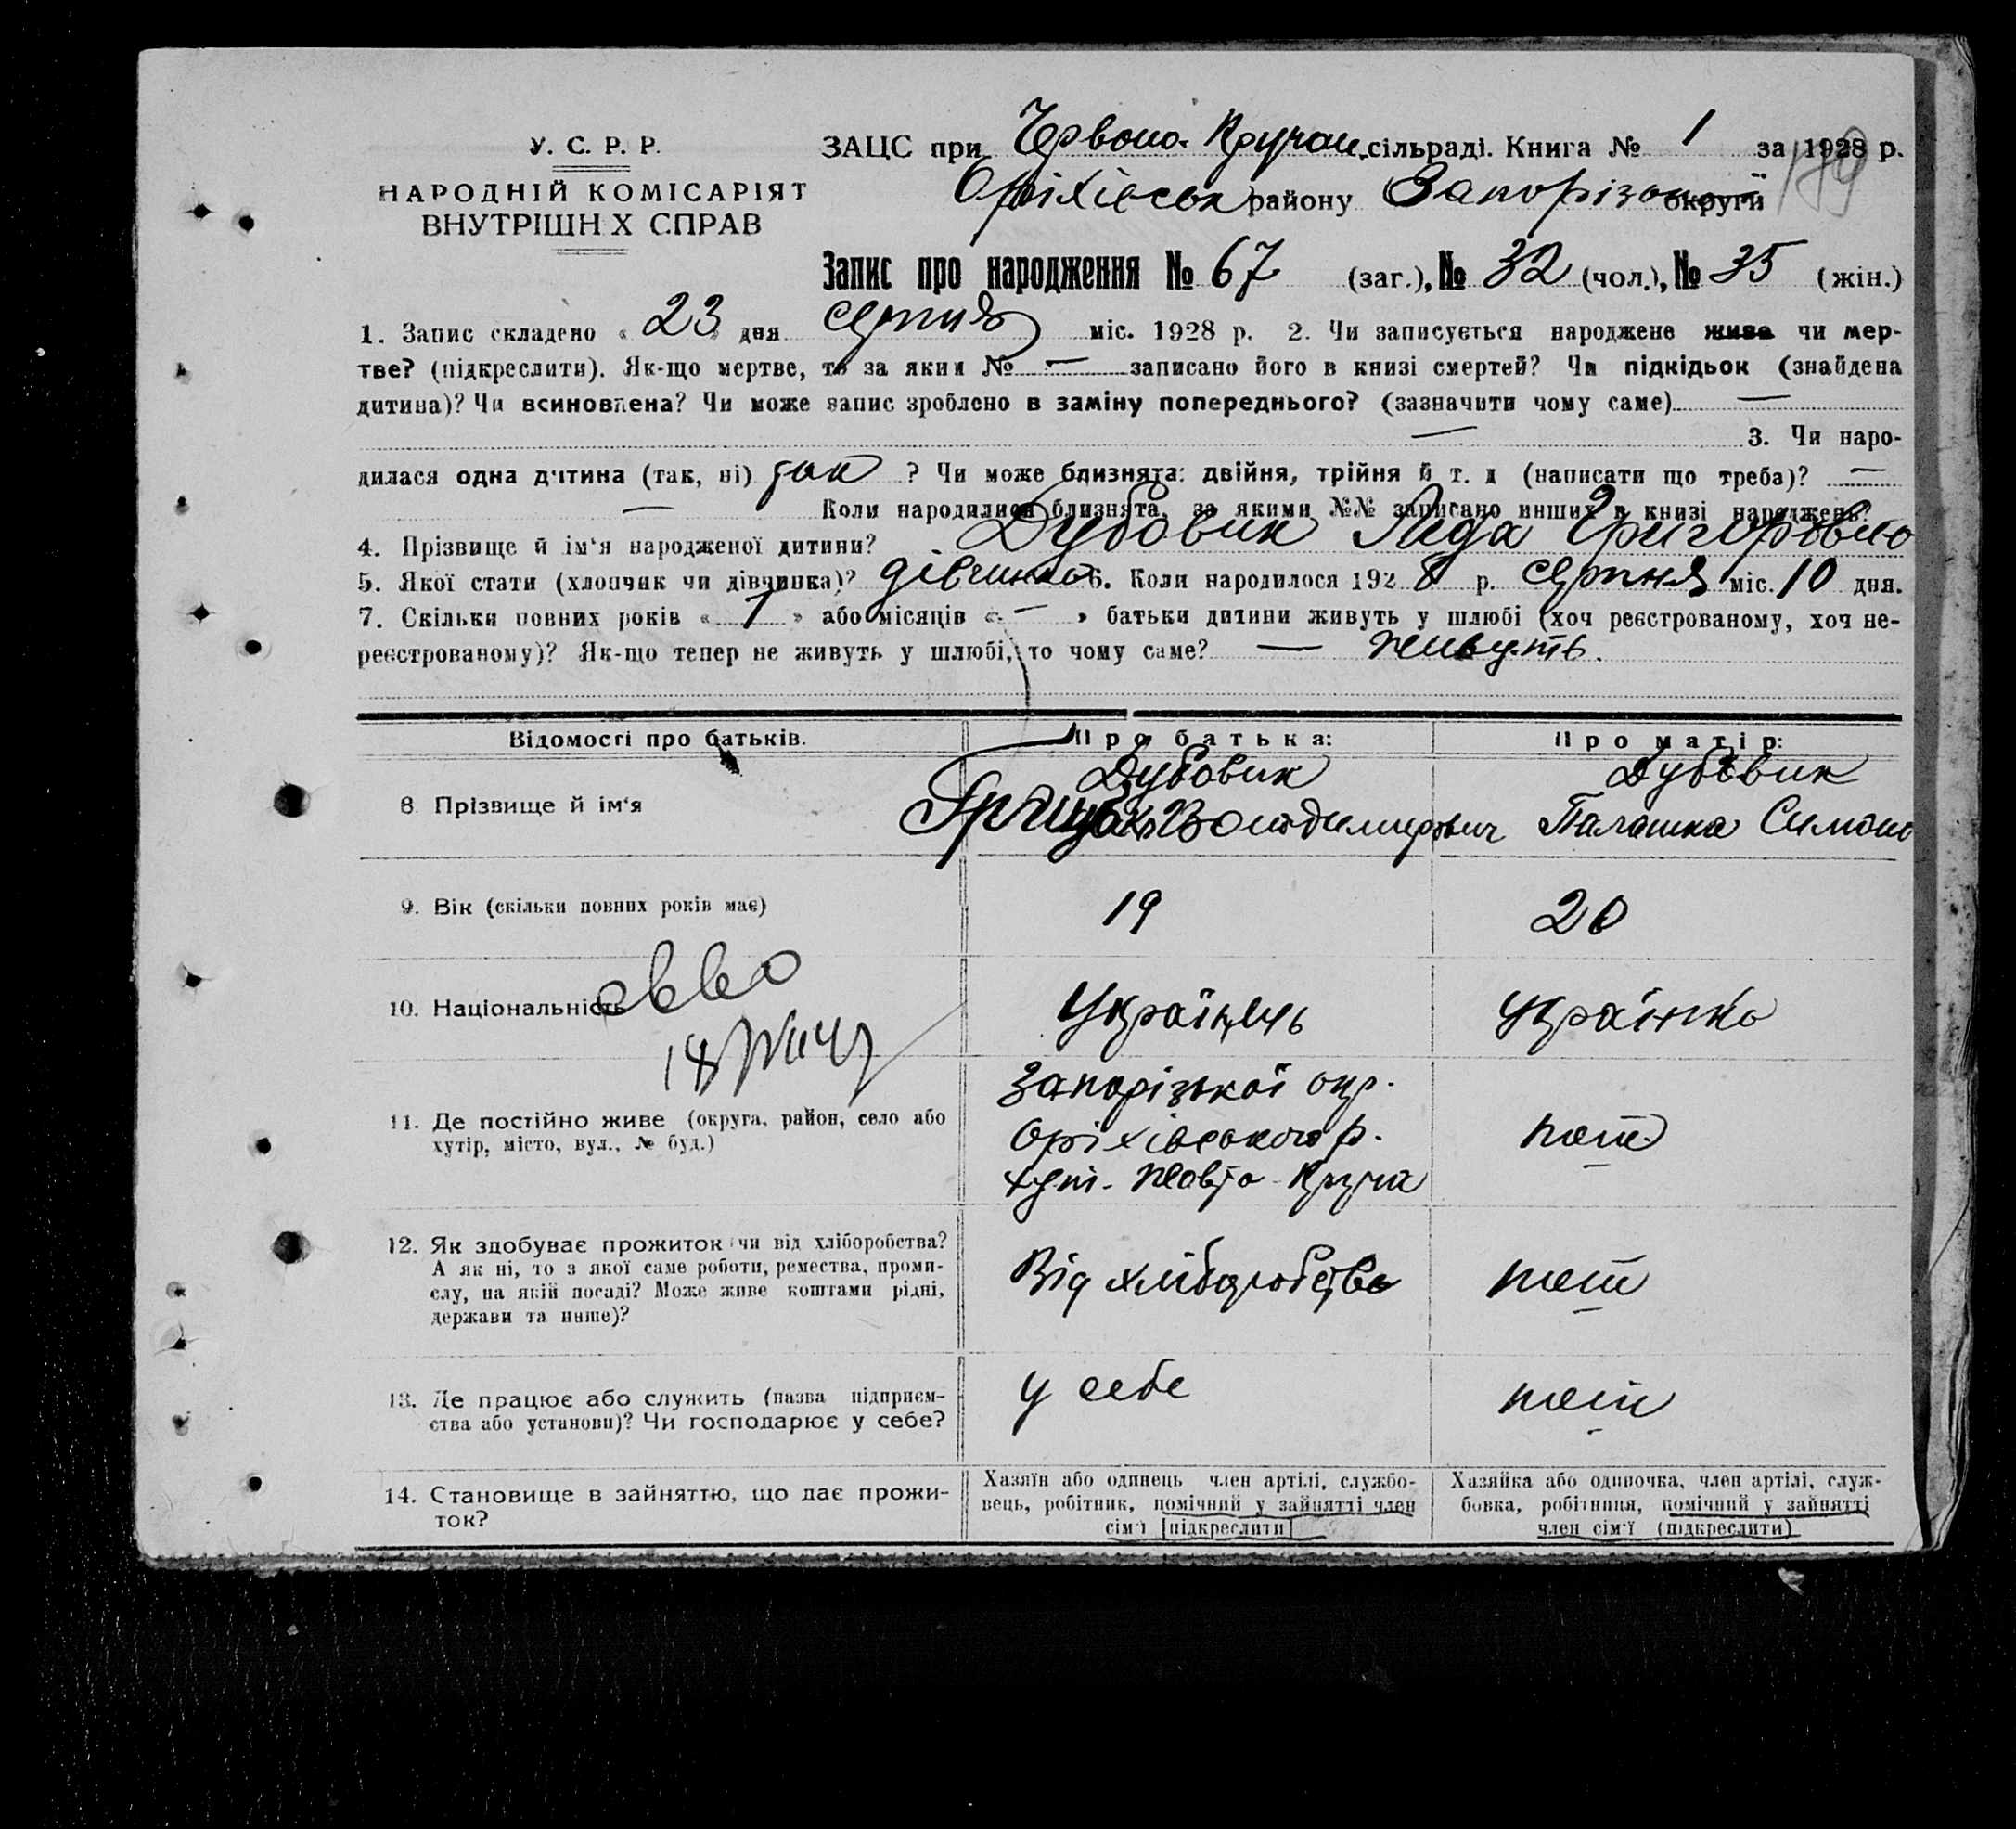 У. С. Р. Р.
НАРОДНІЙ КОМІСАРІЯТ
ВНУТРІШН Х СПРАВ
ЗАЦС при Червоно-Кручан. сільраді. Книга № 1 за 1928 р.
Оріхівськ району Запорізької округи
179
Запис про народження № 67 (заг.), № 32 (чол.), № 35 (жін.)
1. Запис складено « 23 » дня серпня міс. 1928 р. 2. Чи записується народжене живе чи мер-
тве? (підкреслити). Як-що мертве, то за яким № — записано його в книзі смертей? Чи підкідьок (знайдена
дитина)? Чи всиновлена? Чи може запис зроблено в заміну попереднього? (зазначити чому саме) —
— 3. Чи наро-
дилася одна дитина (так, ні) так ? Чи може близнята: двійня, трійня й т. д (написати що треба)? —
— Коли народилися близнята, за якими №№ записано инших в книзі народжень?
4. Прізвище й ім'я народженої дитини? Дубовик Лида Григоровно
5. Якої стати (хлопчик чи дівчинка)? дівчинка 6. Коли народилося 1928 р. серпня міс. 10 дня.
7. Скільки повних років « 1 » або місяців « — » батьки дитини живуть у шлюбі (хоч реєстрованому, хоч не-
реєстрованому)? Як-що тепер не живуть у шлюбі, то чому саме? — живуть.
Відомості про батьків.
Про батька:
Про матір:
8. Прізвище й ім'я
Дубовик
Володимирович
Дубовик
Палашка Симоно
9. Вік (скільки повних років має)
19
20
10. Національність
Українець
Українко
11. Де постійно живе (округа, район, село або
хутір, місто, вул., № буд.)
Запорізької окр.
Оріхівського р.
хут. Жовто-Круча
теж
12. Як здобуває прожиток чи від хліборобства?
А як ні, то з якої саме роботи, ремества, проми-
слу, на якій посаді? Може живе коштами рідні,
держави та инше)?
Від хліборобство
теж
13. Де працює або служить (назва підприєм-
ства або установи)? Чи господарює у себе?
у себе
теж
14. Становище в зайняттю, що дає прожи-
ток?
Хазяїн або одинець член артілі, службо-
вець, робітник, помічний у зайнятті член
сім'ї [підкреслити]
Хазяйка або одиночка, член артілі, служ-
бовка, робітниця, помічний у зайнятті
член сім'ї (підкреслити)